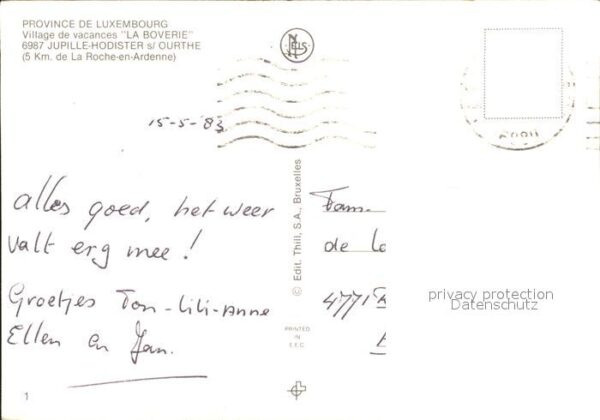 PROVINCE DE LUXEMBOURG
Village de vacances "LA BOVERIE"
6987 JUPILLE-HODISTER s/ OURTHE
(5 Km. de La Roche-en-Ardenne)
NELS
15-5-'83
alles goed, het weer
valt erg mee!
Groetjes Ton-Lili-Anne
Ellen en Jan.
© Edit. Thill, S.A., Bruxelles
PRINTED
IN
E.E.C.
Fam.
de
4771
privacy protection
Datenschutz
1